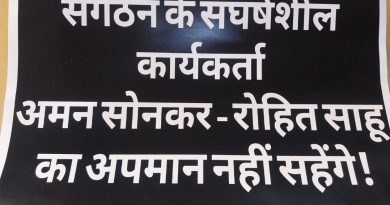 संगठन के संघर्षशील
कार्यकर्ता
अमन सोनकर - रोहित साहू
का अपमान नहीं सहेंगे !